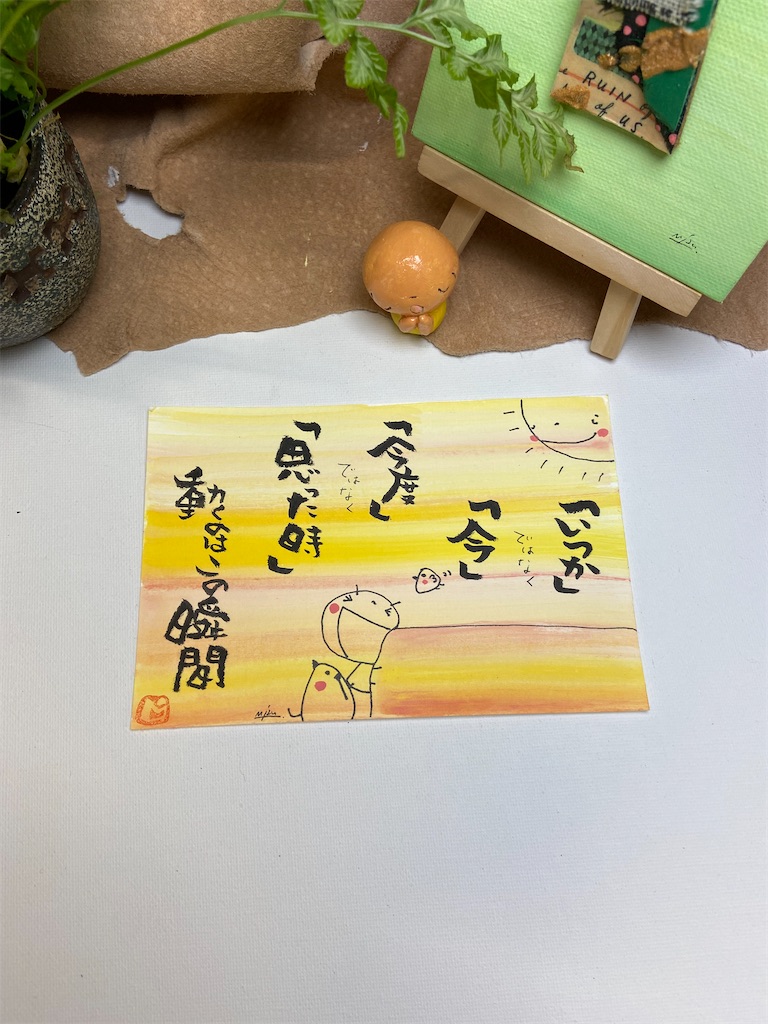 「いつか」
ではなく
「今」
「今度」
ではなく
「思った時」
動くのはこの瞬間
RUIN of
of US